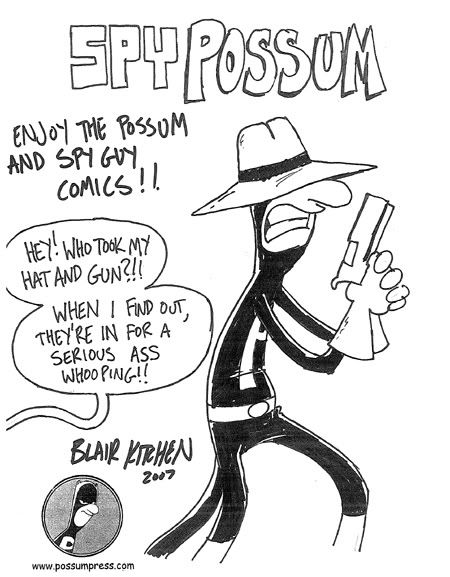 SPY POSSUM
ENJOY THE POSSUM
AND SPY GUY
COMICS!!
HEY! WHO TOOK MY
HAT AND GUN?!!
WHEN I FIND OUT,
THEY'RE IN FOR A
SERIOUS ASS
WHOOPING!!
BLAIR KITCHEN
2007
www.possumpress.com